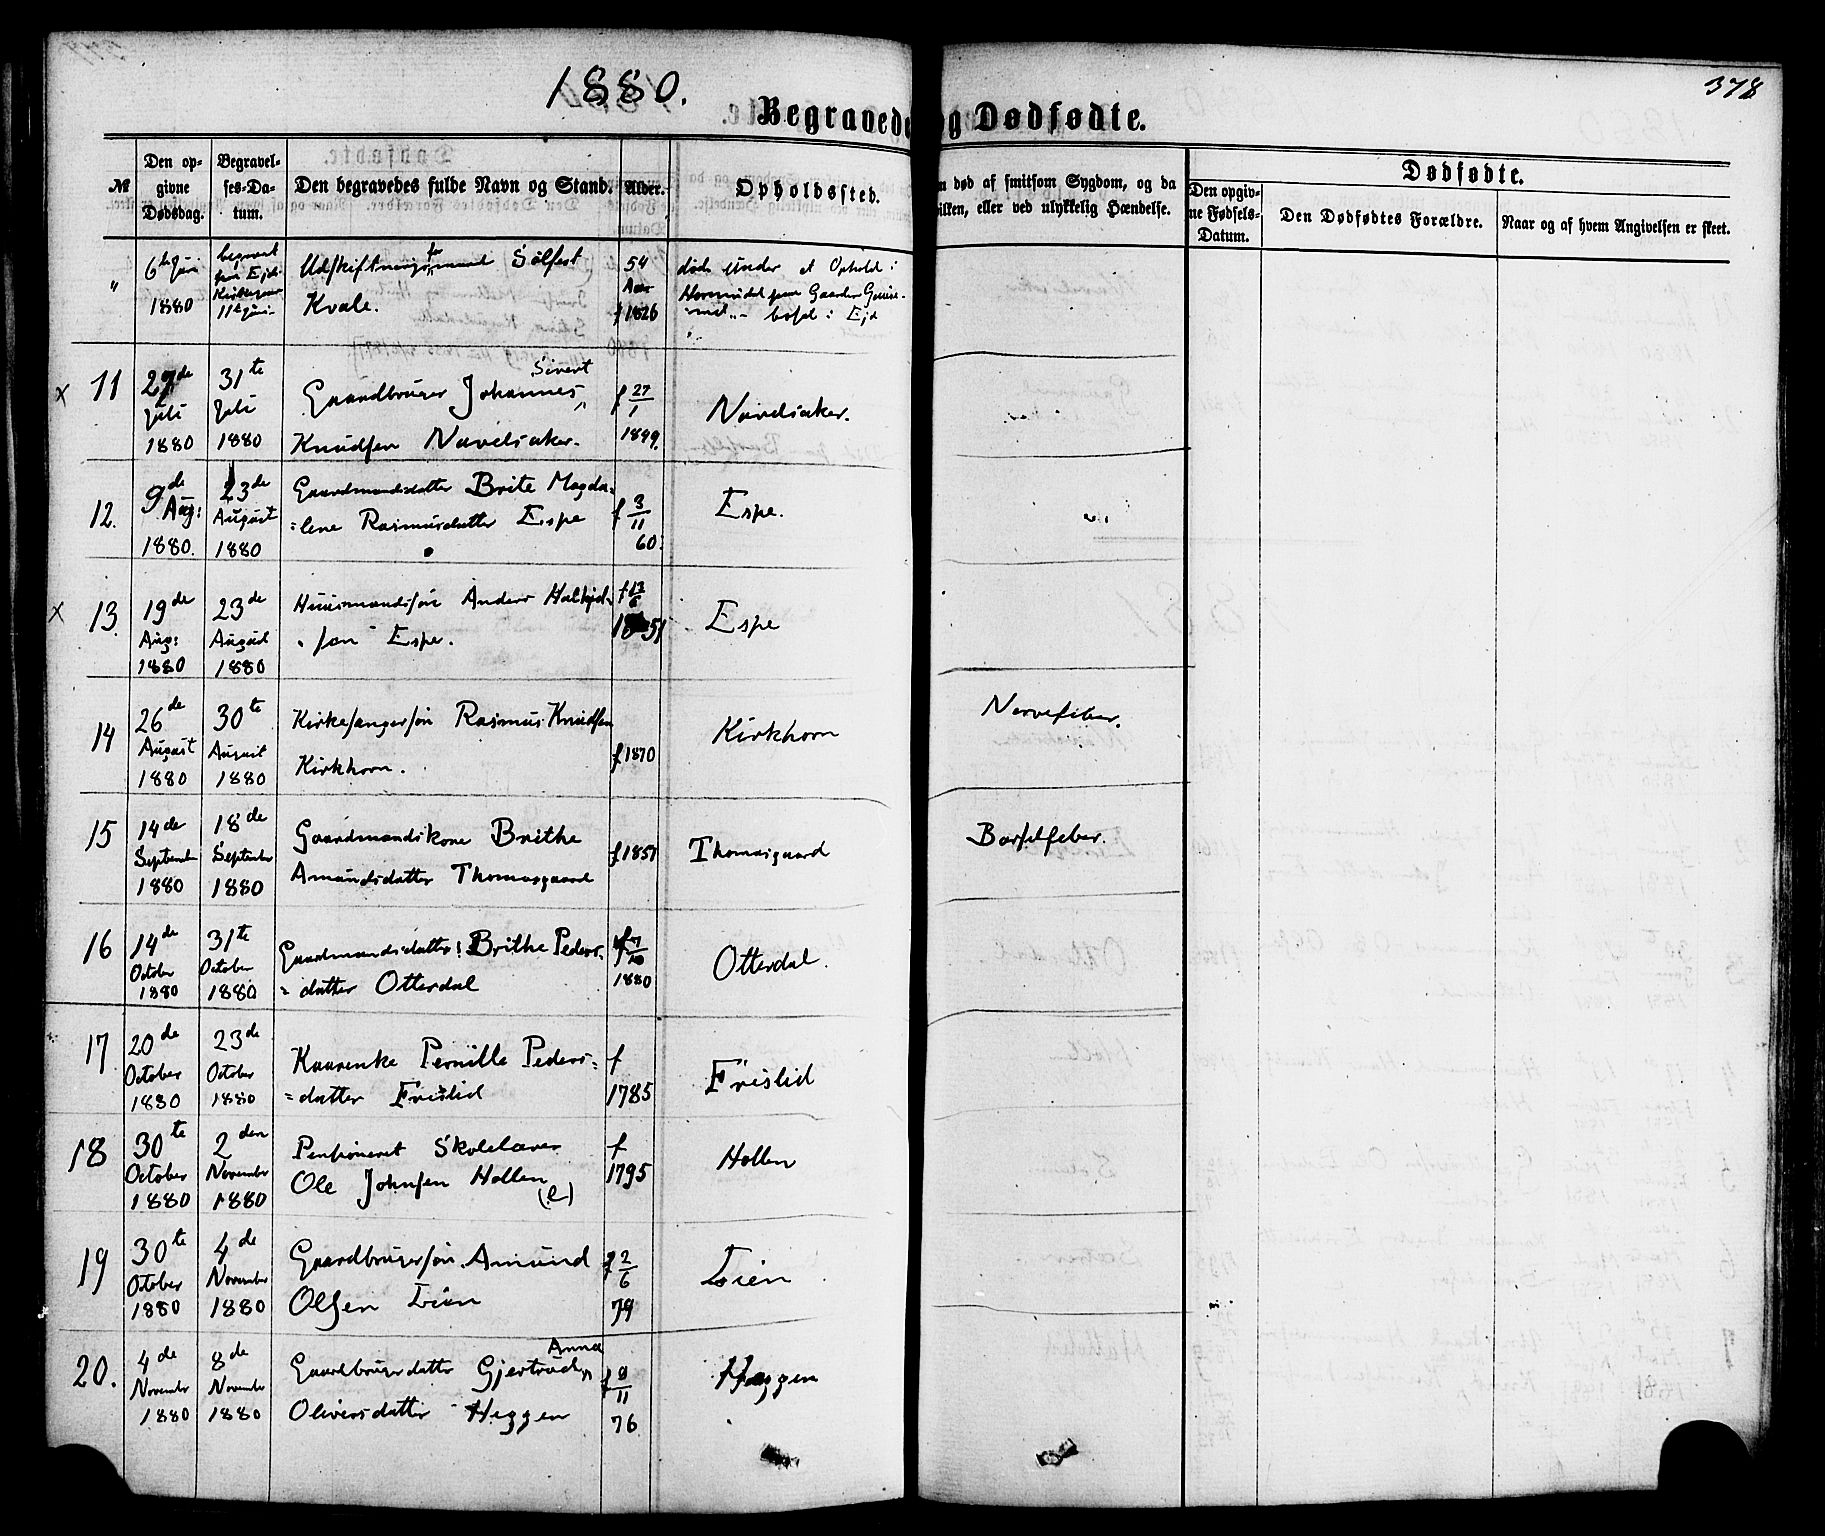 378
1880.
Begravede og Dødfødte.
№
Den opgivne Dødsdag.
Begravelses-Datum.
Den begravedes fulde Navn og Stand.
Alder.
Opholdssted.
n død af smitsom Sygdom, og da
ilken, eller ved ulykkelig Hændelse.
Dødfødte.
Den opgivne Fødsels-Datum.
Den Dødfødtes Forældre.
Naar og af hvem Angivelsen er skeet.
" 6te Juni 1880 begravet paa Ejds Kirkegaar 11te Juni Udskiftningsformand Sölfest 54 Aar døde under et Ophold i
Kvale. f 1826 paa Gaarden bosat i Ejd
x 11 27de Juli 1880 31te Juli 1880 Gaardbruger Johannes Sivert f 27/1 1849. Navelsaker.
Knudsen Navelsaker.
12. 9de Aug: 1880. 23de August 1880 Gaardmandsdatter Brite Magda= f 3/11 60. Espe.
=lene Rasmusdatter Espe
x 13. 19de Aug: 1880 23de August 1880 Huusmandssøn Anders f 13/6 1851 Espe
sen Espe.
14 26de August 1880 30te August 1880 Kirkesangersøn Rasmus Knudsen f 1870 Kirkhorn Nervefeber.
Kirkhorn.
15 14de September 1880 18de September 1880 Gaardmandskone Brithe f 1851 Thomasgaard Barselfeber.
Amundsdatter Thomasgaard
16 14de October 1880 31te October 1880 Gaardmandsdatter: Brithe Peders= f 7/10 1880 Otterdal.
=datter Otterdal
17 20de October 1880 23de October 1880 Kaarenke Pernille Peders= f 1785 Frislid
=datter Frislid
18 30te October 1880 2den November 1880 Pensioneret Skolelærer f 1795 Hollen
Ole Johnsen Hollen (e)
19 30te October 1880 4de November 1880 Gaardbrugersøn Amund f 2/6 79 Lien
Olsen Lien
20. 4de November 1880 8de November 1880 Gaardbrugerdatter Gjertrud Anna f 9/11 76 Heggen
Oliversdatter Heggen